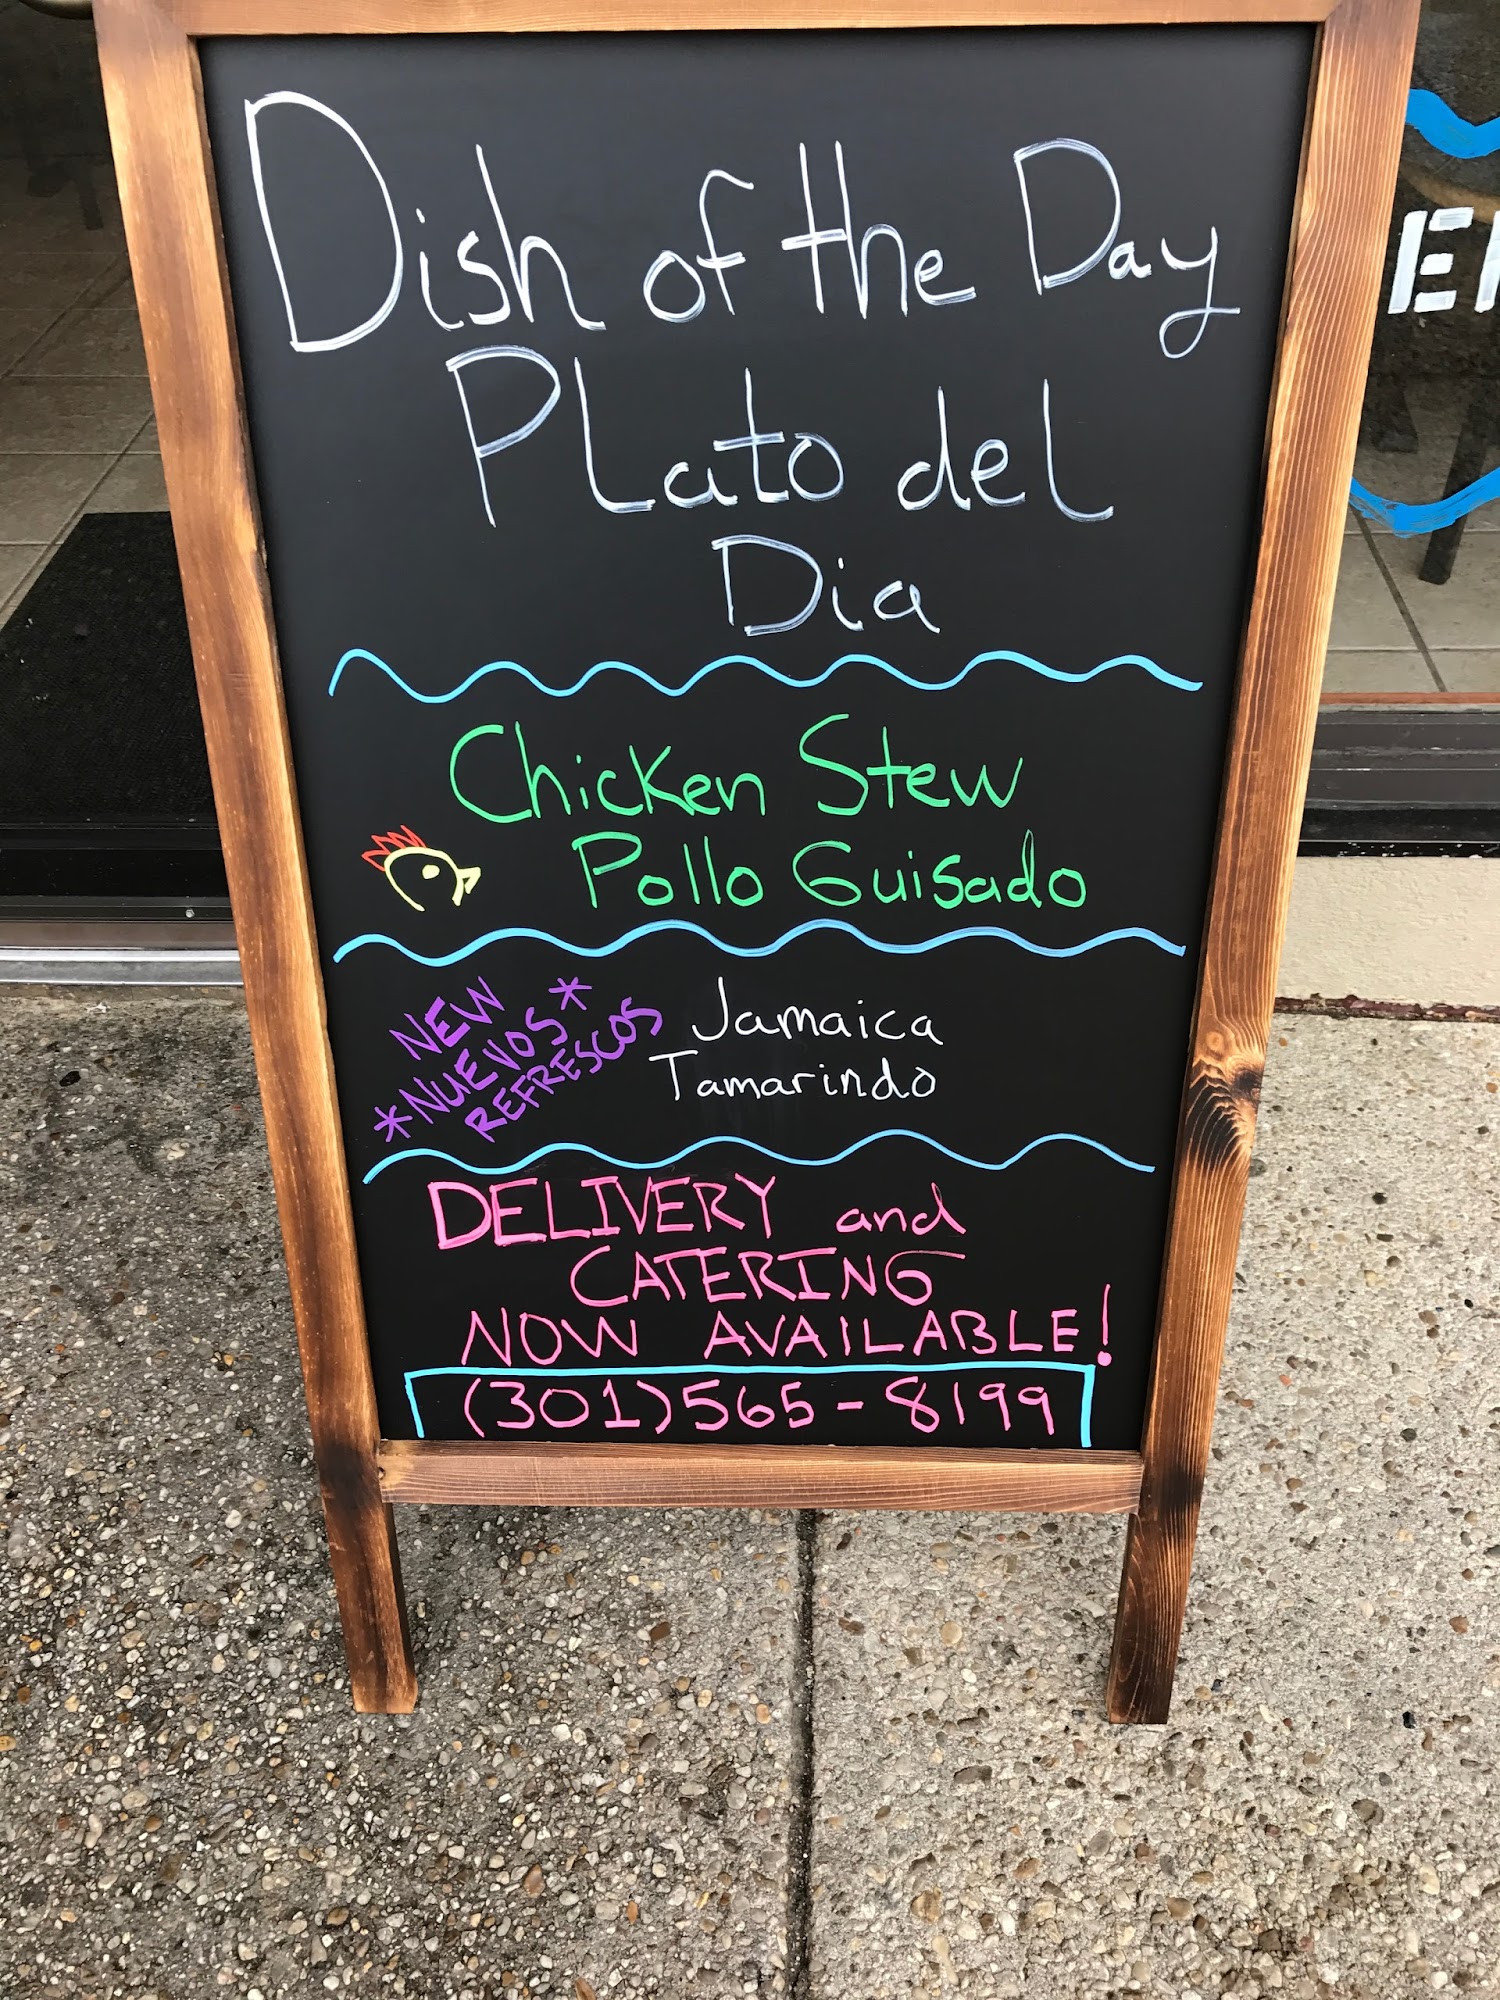 Dish of the Day
Plato del
Dia
Chicken Stew
Pollo Guisado
NEW
*NUEVOS*
REFRESCOS
Jamaica
Tamarindo
DELIVERY and
CATERING
NOW AVAILABLE!
(301)565-8199